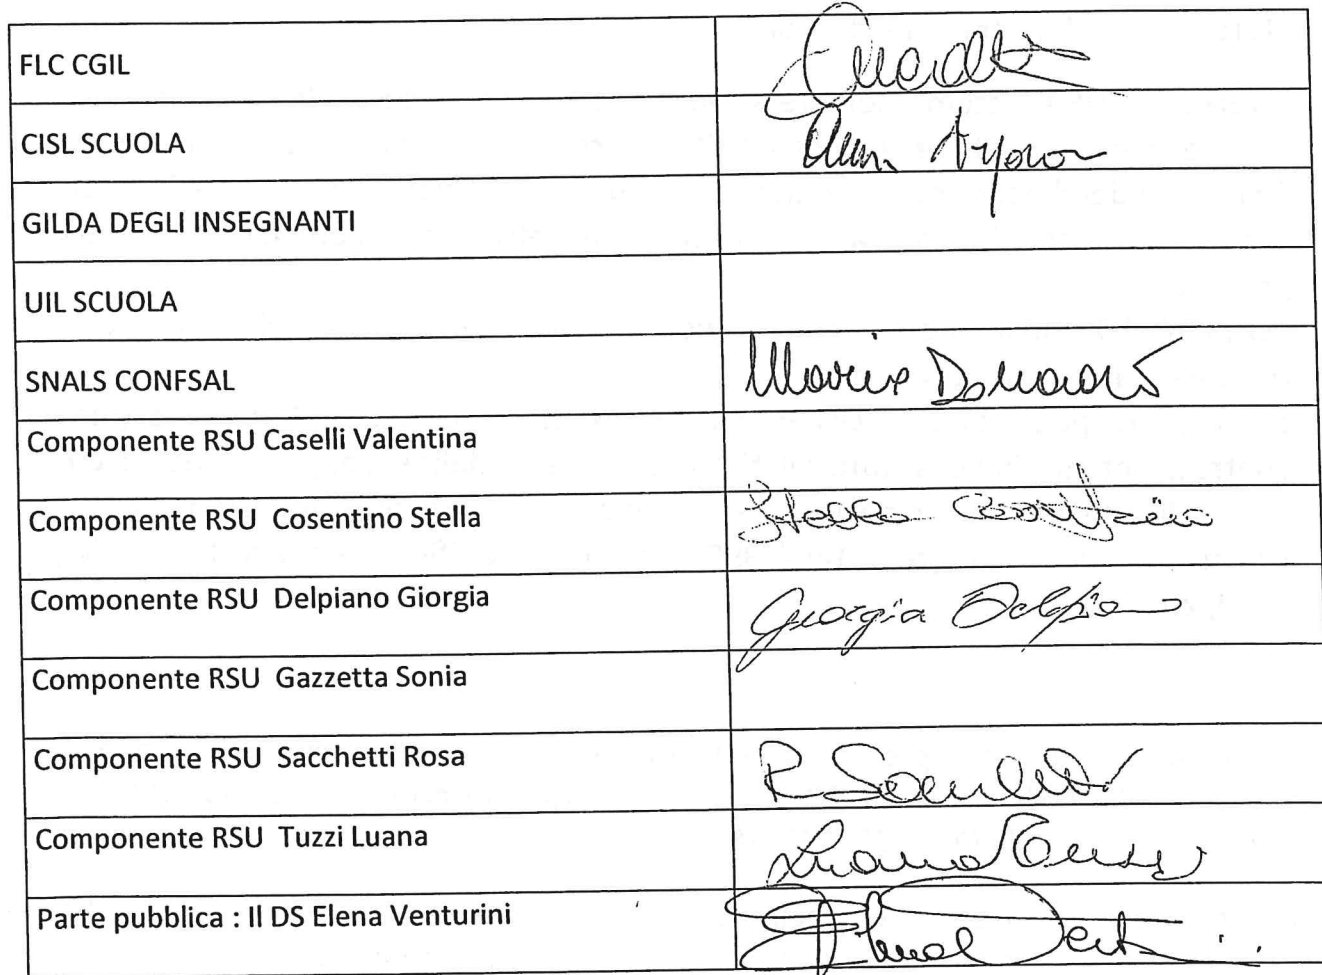 FLC CGIL
CISL SCUOLA
GILDA DEGLI INSEGNANTI
UIL SCUOLA
SNALS CONFSAL
Componente RSU Caselli Valentina
Componente RSU Cosentino Stella Stella Cosentino
Componente RSU Delpiano Giorgia Giorgia Delpiano
Componente RSU Gazzetta Sonia
Componente RSU Sacchetti Rosa R Sacchetti
Componente RSU Tuzzi Luana Luana Tuzzi
Parte pubblica : Il DS Elena Venturini